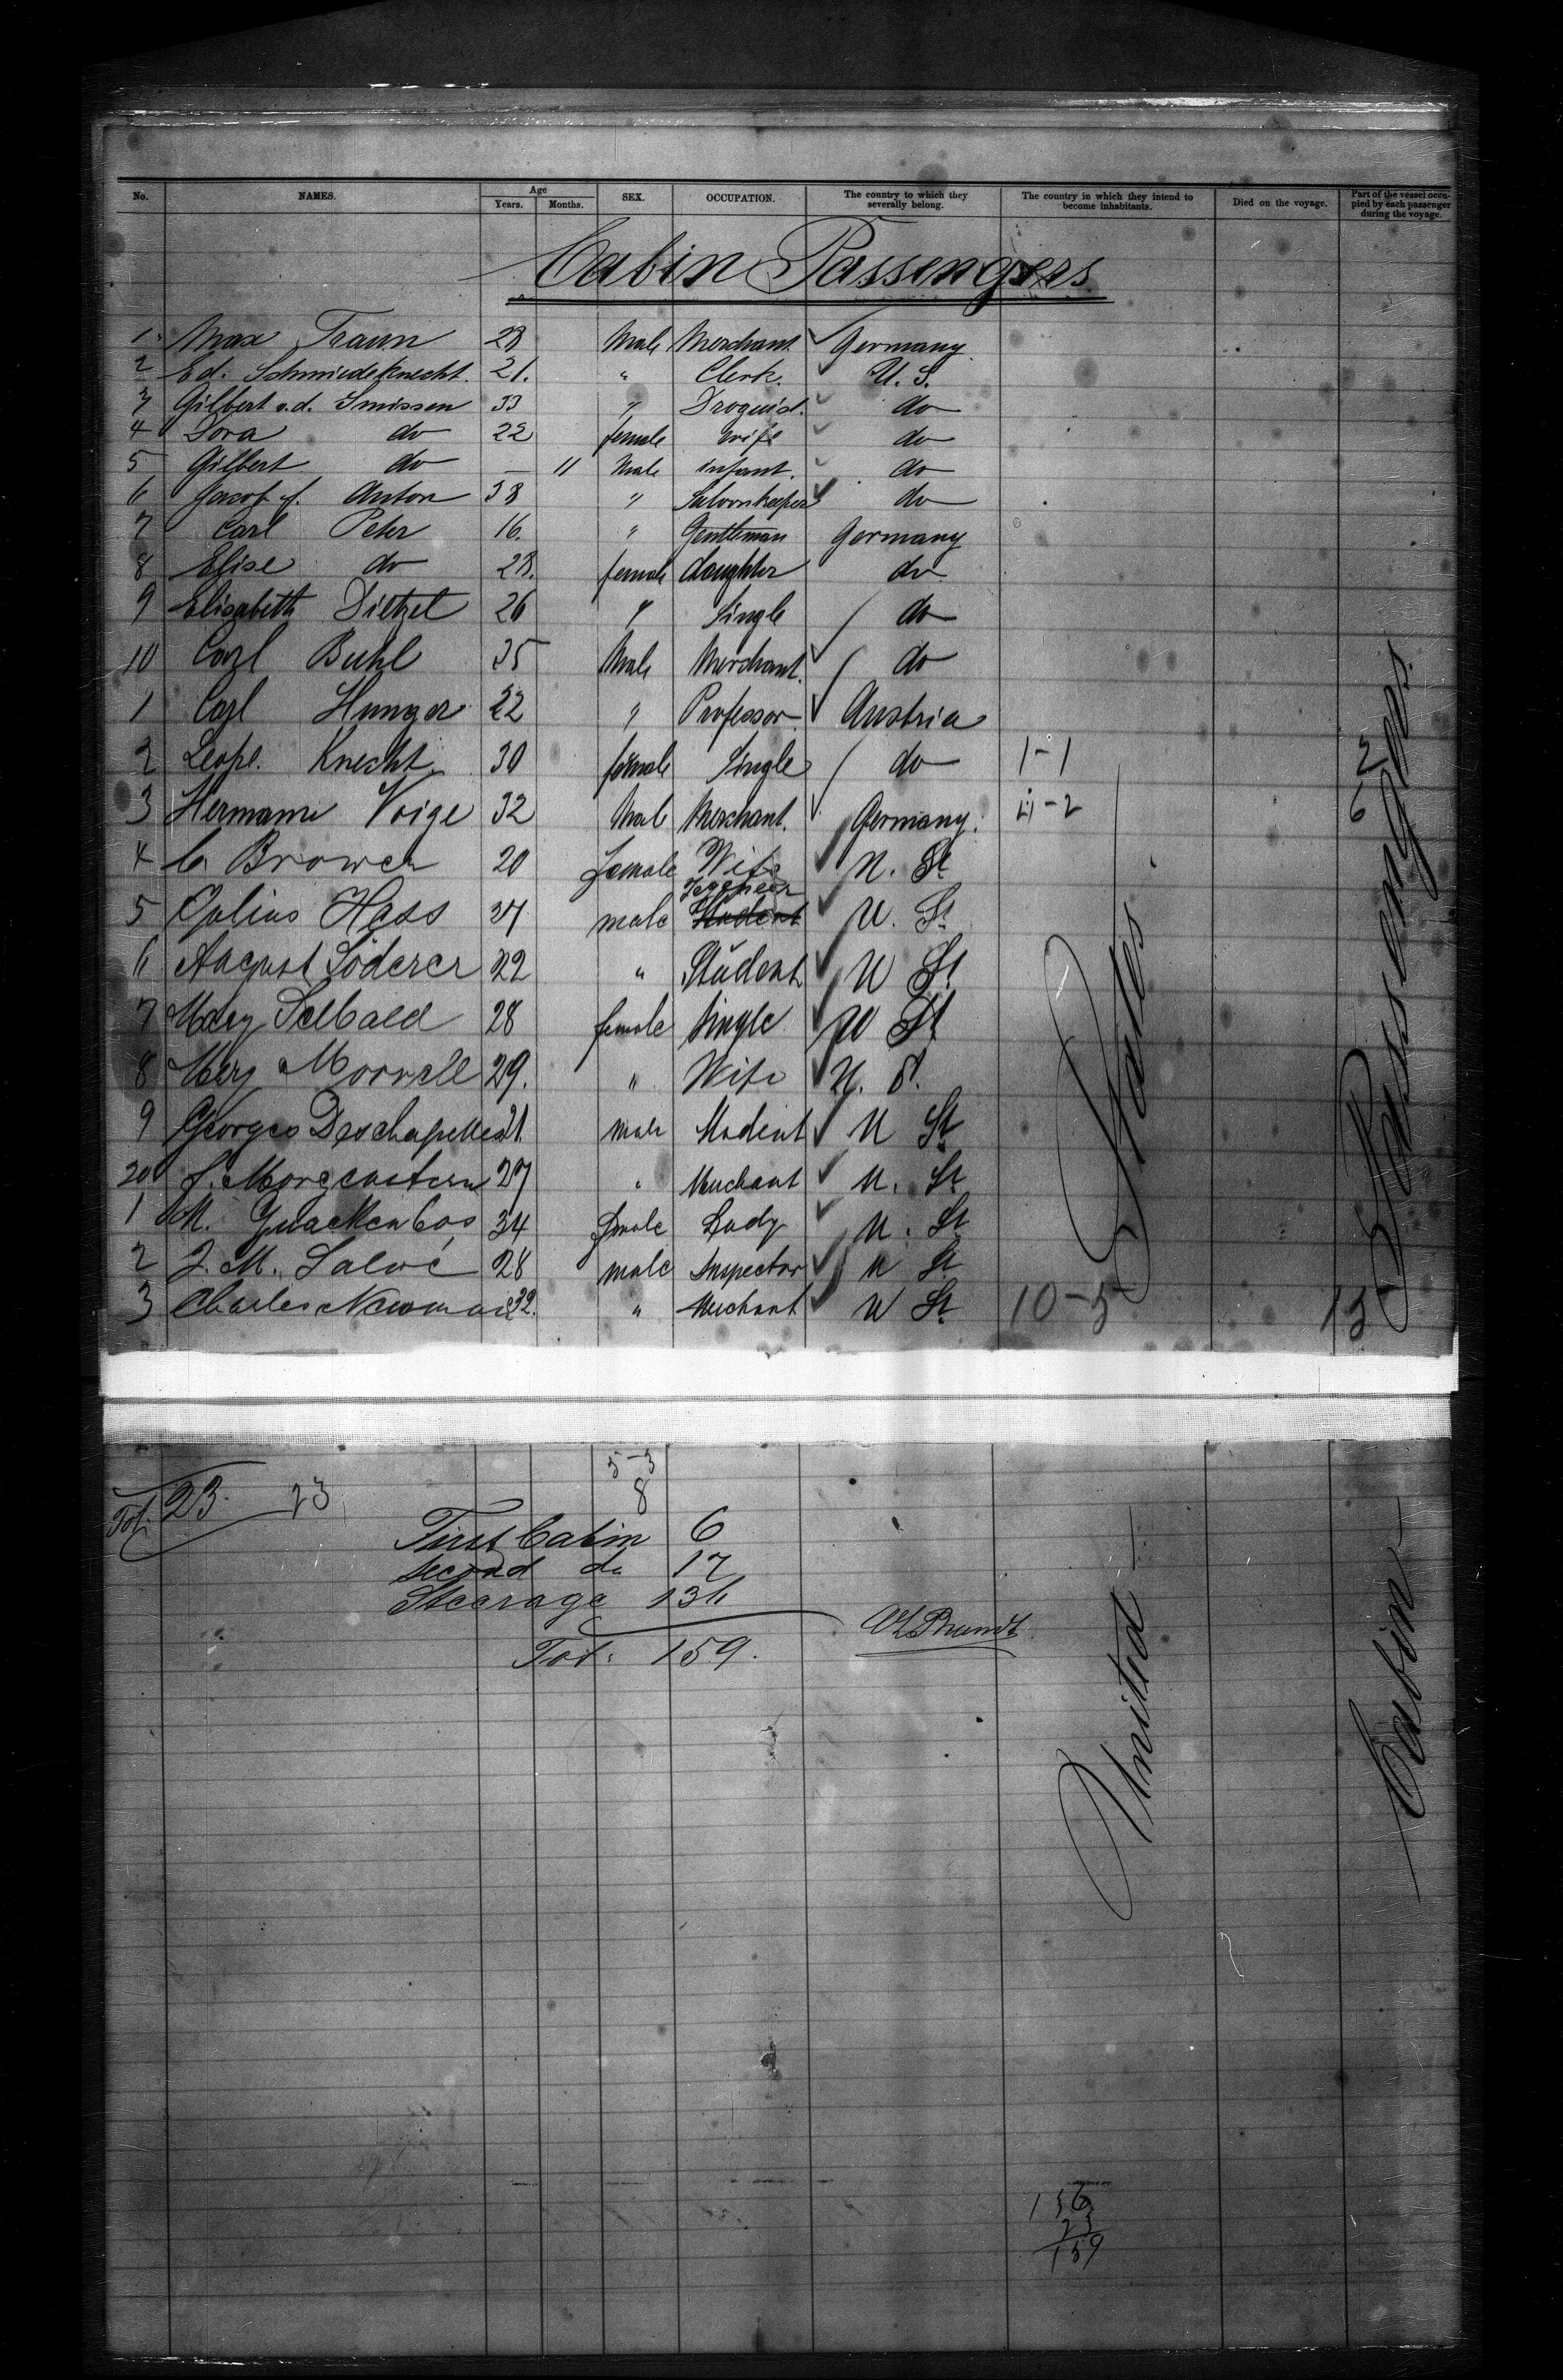 No. NAMES. Age Years. Months. SEX. OCCUPATION. The country to which they severally belong. The country in which they intend to become inhabitants. Died on the voyage. Part of the vessel occupied by each passenger during the voyage.
Cabin Passengers
1 Max Traun 28 Male Merchant Germany
2 Ed. Schmiedeknecht. 21. " Clerk. U. S.
3 Gilbert v.d. Smissen 33 " Droguist. do
4 Dora do 22 female wife do
5 Gilbert do — 11 Male infant. do
6 Jacob f. Anton 38 " Saloonkeeper do
7 Carl Peter 16. " Gentleman Germany
8 Elise do 28. female daughter do
9 Elisabeth Dietzel 26 " Single do
10 Carl Buhl 25 Male Merchant. do
1 Carl Hunger 22 " Professor. Austria
2 Leopl. Knecht 30 female Single do 1-1 2
3 Hermann Voige 32 Male Merchant. Germany. 4-2 6
4 C. Brower 20 female Wife U. St
5 Julius Hass 37 male Student U. St
6 August Söderer 22 " Student U St
7 Mary Selbald 28 female Single U St
8 Mery Morrell 29. " Wife U. S.
9 Georges Deschapelles 21. male Student U St
20 J. Morgenstern 27 " Merchant U. St
1 M. Quackenbos 34 female Lady U. St
2 J. M. Salvé 28 male Inspector U St
3 Charles Newman 32. " Merchant U St 10-5 15
United States.
Cabin Passengers.
5-3
8
Tot. 23. 23
First Cabin 6
second do 17
Steerage 136
Tot: 159.
136
23
159